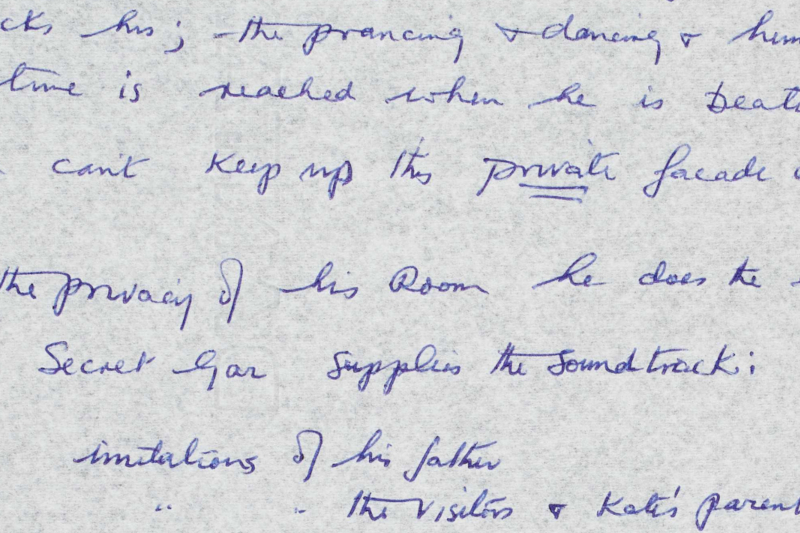 cks his; the prancing & dancing & him
time is reached when he is Death
can't keep up this private facade
the privacy of his Room he does the
Secret Gar supplies the soundtrack:
imitations of his father
" " the visitors & Kate's parent